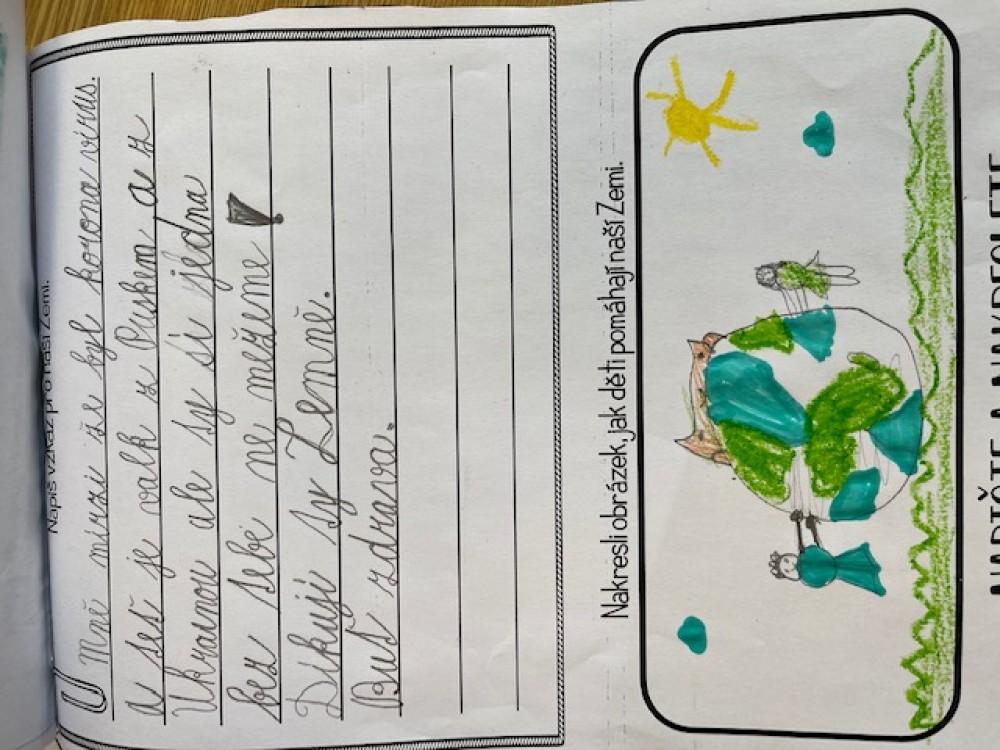 Napiš vzkaz pro naši Zemi.
Mně mrzí že byl korona virus.
A teť je valk z Ruskem a z
Ukrainou ale ty si jedna
bez tebe ne mežeme
Dikuji ty Zemně.
Buť zdrava.
Nakresli obrázek, jak děti pomáhají naší Zemi.